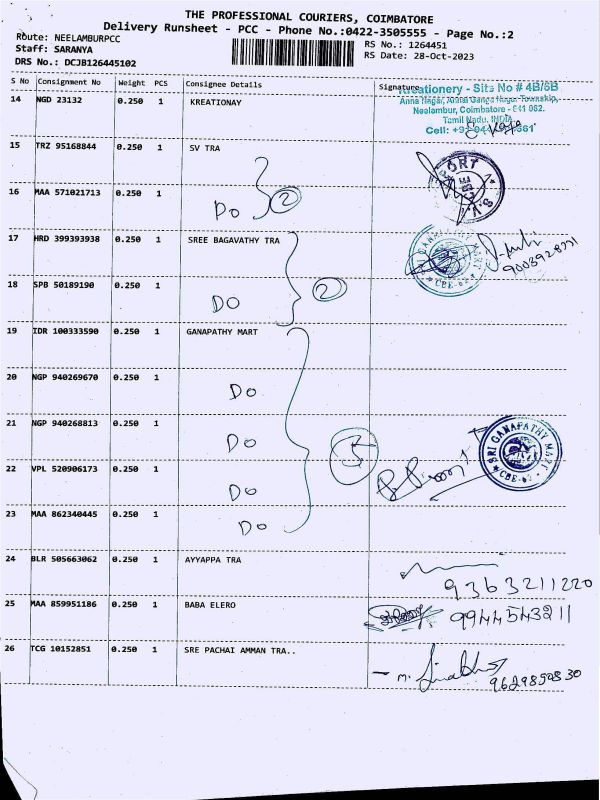 THE PROFESSIONAL COURIERS, COIMBATORE
Delivery Runsheet - PCC - Phone No.:0422-3505555 - Page No.:2
Route: NEELAMBURPCC
Staff: SARANYA
DRS No.: DCJB126445102
RS No.: 1264451
RS Date: 28-Oct-2023
S No Consignment No Weight PCS Consignee Details Signature
14 NGD 23132 0.250 1 KREATIONAY
Kreationery - Site No # 4B/6B
Neelambur, Coimbatore - 641 062.
Tamil Nadu. INDIA
Cell:
15 TRZ 95168844 0.250 1 SV TRA
16 MAA 571021713 0.250 1 Do 2
17 HRD 399393938 0.250 1 SREE BAGAVATHY TRA
SRI GANAPATHY MART
CBE-62
9003928971
18 SPB 50189190 0.250 1 DO 2
19 IDR 100333590 0.250 1 GANAPATHY MART
20 NGP 940269670 0.250 1 Do
21 NGP 940268813 0.250 1 Do 5
SRI GANAPATHY MART
CBE-62
22 VPL 520906173 0.250 1 Do
23 MAA 862340445 0.250 1 Do
24 BLR 505663062 0.250 1 AYYAPPA TRA 9363211220
25 MAA 859951186 0.250 1 BABA ELERO 9944543211
26 TCG 10152851 0.250 1 SRE PACHAI AMMAN TRA..